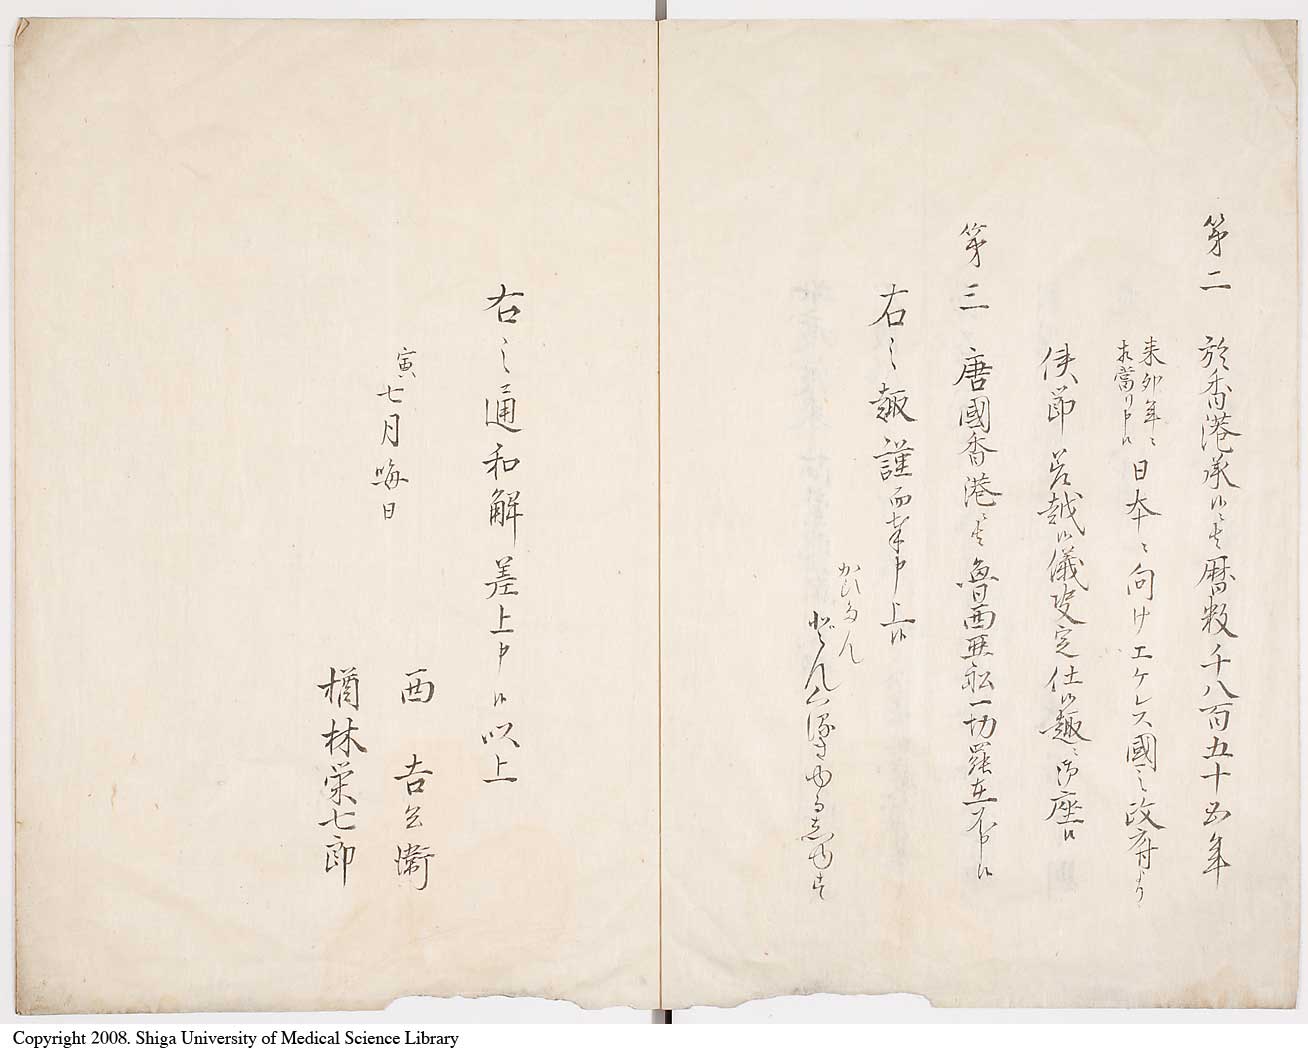 第二 於香港承候ニ者暦数千八百五十五年
来卯年ニ
相當リ申候
日本ニ向けエケレス國之政府より
使節差越候儀決定仕候趣ニ御座候
第三 唐國香港ニ者魯西亜舩一切罷在不申候
右之趣謹而奉申上候
かひたん
どんくるきゆるしゆす
右之通和解差上申候以上
寅七月晦日
西吉兵衛
楢林栄七郎
Copyright 2008. Shiga University of Medical Science Library